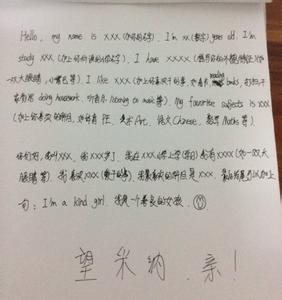 Hello, my name is xxx (你的名字). I'm xx (数字) years old. I'm
study xxx (加上你所读的小学名字). I have xxxxx
双大眼睛, 小嘴巴等) I like xxx (加上你喜欢干的事, 如看书 reading books, 打扫干
家务活 doing housework, 听音乐 listening to music等). My favorite subjects is xxx
(加上你喜欢的科目, 如体育 P.E, 美术 Art, 语文 Chinese, 数学 Maths 等).
你们好, 我叫xxx, 我xx岁了, 我在xxx (学上学(学习)) 我有xxxx (如一双大
眼睛等). 我喜欢xxx (数干的事), 我最喜欢的科目是xxx. 最后你可以加上
句: I'm a kind girl. 我是一个善良的女孩.
望采纳,亲!